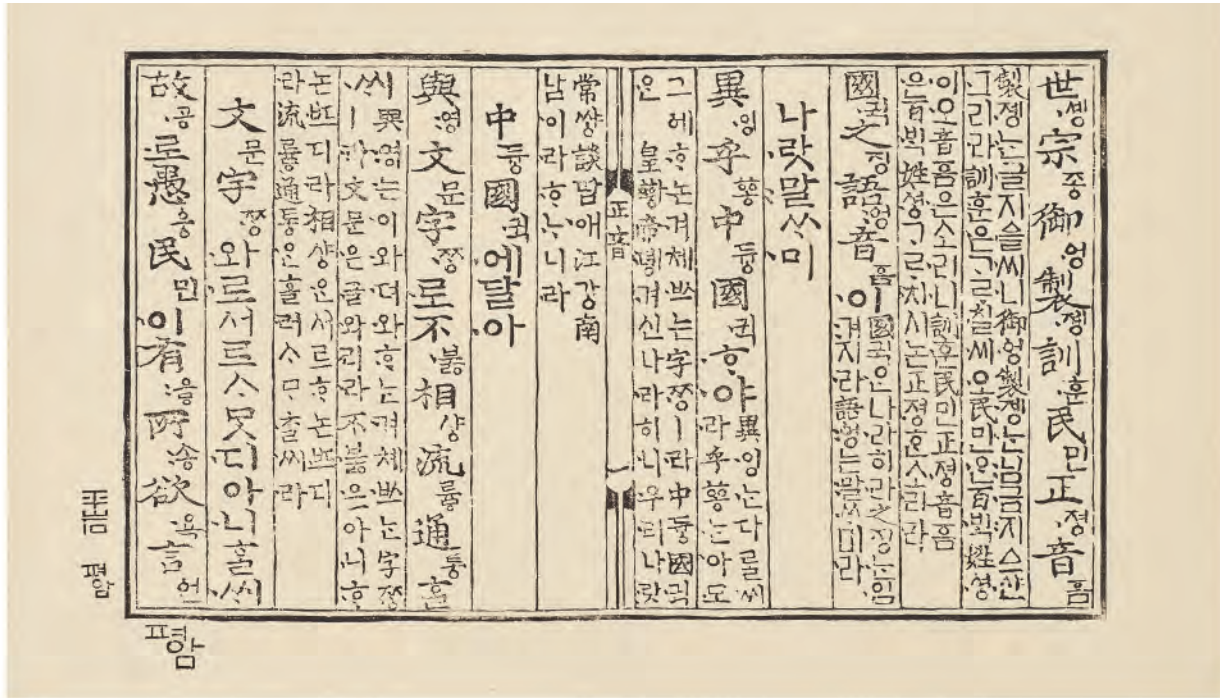 世솅宗조ᇰ御어ᇰ製졩訓훈民민正져ᇰ音ᅙᅳᆷ
製졩는글지ᅀᅳᆯ씨니御어ᇰ製졩는님금지ᅀᅳ샨
그리라訓훈은ᄀᆞᄅᆞ칠씨오民민ᄋᆞᆫ百ᄇᆡᆨ姓셔ᇰ
이오音ᅙᅳᆷ은소리니訓훈民민正져ᇰ音ᅙᅳᆷ
은百ᄇᆡᆨ姓셔ᇰᄀᆞᄅᆞ치시논正져ᇰᄒᆞᆫ소리라
國귁之징語ᅌᅥᆼ音ᅙᅳᆷ이國귁ᄋᆞᆫ나라히라之징ᄂᆞᆫ입
겨지라語ᅌᅥᆼ는말ᄊᆞ미라
나랏말ᄊᆞ미
異잉乎ᅘᅩᆼ中듀ᇰ國귁ᄒᆞ야異잉ᄂᆞᆫ다ᄅᆞᆯ씨
라乎ᅘᅩᆼᄂᆞᆫ아모
그ᅌᅦᄒᆞ논겨체ᄡᅳ는字ᄍᆞᆼㅣ라中듀ᇰ國귁
ᄋᆞᆫ 皇황帝뎽겨신나라히니우리나랏
正音
常쌰ᇰ談땀애江가ᇰ南
남이라ᄒᆞᄂᆞ니라
中듀ᇰ國귁에달아
與영文문字ᄍᆞᆼ로不부ᇙ相샤ᇰ流류ᇢ通토ᇰᄒᆞᆯ
씨與영는이와뎌와ᄒᆞ는겨체ᄡᅳ는字ᄍᆞᆼ
ㅣ라文문은글와리라不부ᇙ은아니ᄒᆞ
논ᄠᅳ디라相샤ᇰᄋᆞᆫ서르ᄒᆞ논ᄠᅳ디
라流류ᇢ通토ᇰᄋᆞᆫ흘러ᄉᆞᄆᆞᄎᆞᆯ씨라
文문字ᄍᆞᆼ와로서르ᄉᆞᄆᆞᆺ디아니ᄒᆞᆯᄊᆡ
故고ᇰ로愚ᅌᅮᆼ民민이有우ᇢ所송欲욕言ᅌᅥᆫ
평암
평암